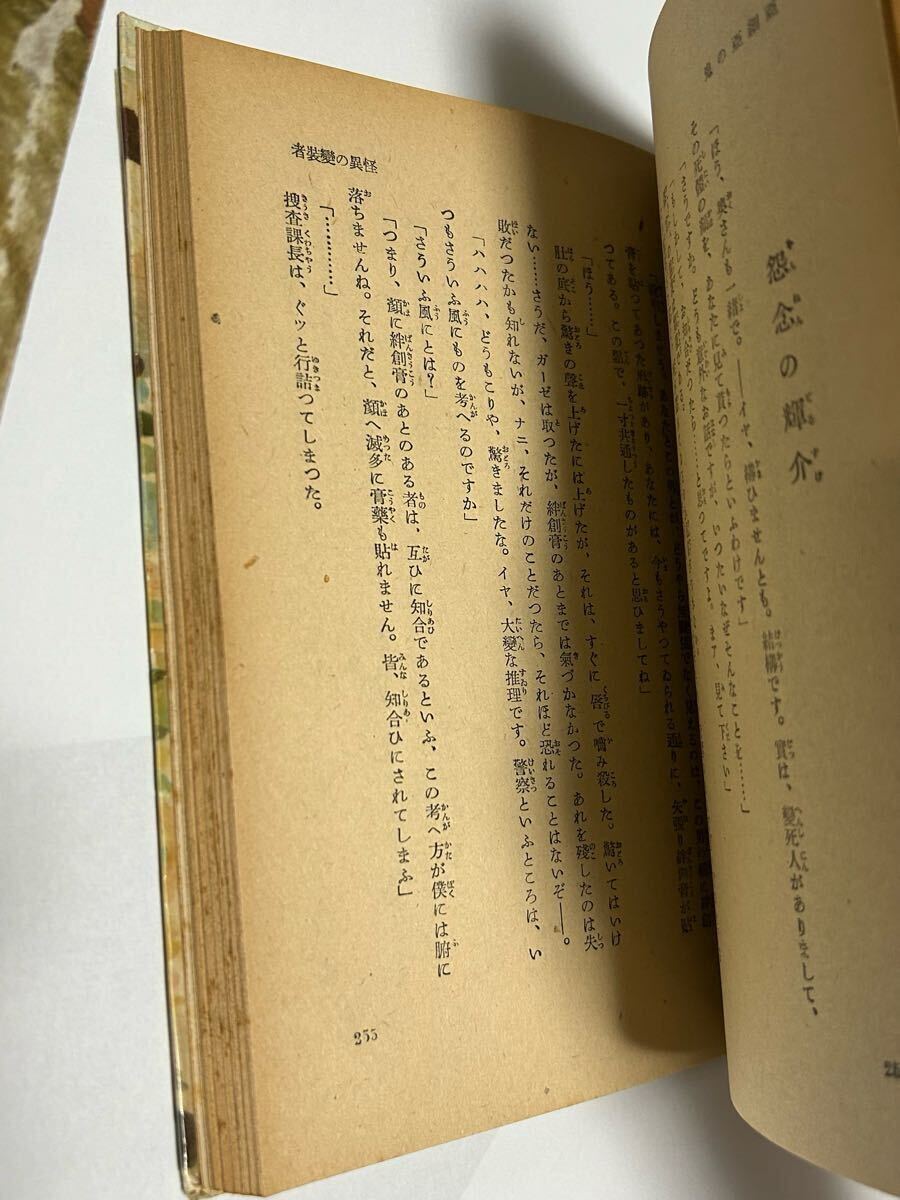 鬼の
怨念の輝介
「ほう、奥さんも一緒で。――イヤ、構ひませんとも。結構です。實は、變死人がありまして、
その死體の顏を、あなたに見て貰つたらといふわけです」
「さうですか。どうも意外なお話ですが、いつたいなぜそんなことを……」
「もしかして、お知合ぢやつたら……と思つてですよ。まア、見て下さい」
膏を貼つてあつた形跡があり、あなたには、今もさうやつてゐられる通りに、矢張り絆創膏が貼
つてある。この點で、一寸共通したものがあると思ひましてね」
「ほう……」
肚の底から驚きの聲を上げたには上げたが、それは、すぐに唇で嚙み殺した。驚いてはいけ
ない……さうだ、ガーゼは取つたが、絆創膏のあとまでは氣づかなかつた。あれを殘したのは失
敗だつたかも知れないが、ナニ、それだけのことだつたら、それほど恐れることはないぞ――。
「ハハハハ、どうもこりや、驚きましたな。イヤ、大變な推理です。警察といふところは、い
つもさういふ風にものを考へるのですか」
「さういふ風にとは?」
「つまり、顏に絆創膏のあとのある者は、互ひに知合であるといふ、この考へ方が僕には腑に
落ちませんね。それだと、顏へ滅多に膏藥も貼れません。皆、知合ひにされてしまふ」
「…………」
捜査課長は、ぐッと行詰つてしまつた。
者裝變の異怪
255